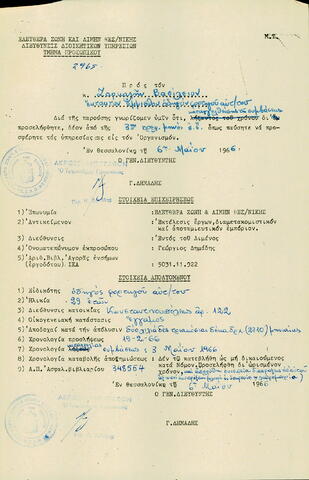 ΕΛΕΥΘΕΡΑ ΖΩΝΗ ΚΑΙ ΛΙΜΗΝ ΘΕΣ/ΝΙΚΗΣ
ΔΙΕΥΘΥΝΣΙΣ ΔΙΟΙΚΗΤΙΚΩΝ ΥΠΗΡΕΣΙΩΝ
ΤΜΗΜΑ ΠΡΟΣΩΠΙΚΟΥ
Μ.Τ.
2965
Πρός τόν
κ. Βασίλειον
Διά τῆς παρούσης γνωρίζομεν ὑμῖν ὅτι, τοῦ χρόνου δι
προσελήφθητε, δέον ἀπό τῆς 3ης μηνός ἐ.ἔ. ὅπως παύσητε νά προσ-
φέρητε τάς ὑπηρεσίας σας εἰς τόν Ὀργανισμόν.
Ἐν Θεσσαλονίκῃ τῇ 6ῃ Μαΐου 1966
Ο ΓΕΝ.ΔΙΕΥΘΥΝΤΗΣ
Γ.ΔΗΜΑΔΗΣ
ΣΤΟΙΧΕΙΑ ΕΠΙΧΕΙΡΗΣΕΩΣ
1) Ἐπωνυμία : ΕΛΕΥΘΕΡΑ ΖΩΝΗ & ΛΙΜΗΝ ΘΕΣ/ΝΙΚΗΣ
2) Ἀντικείμενον : Ἐκτέλεσις ἔργων, διαμετακομιστικόν
καί ἀποταμιευτικόν ἐμπόριον.
3) Διεύθυνσις : Ἐντός τοῦ Λιμένος
4) Ὀνοματεπώνυμον ἐκπροσώπου : Γεώργιος Δημάδης
5) Ἀριθ.Βιβλ.Ἀγορᾶς ἐνσήμων
(ἐργοδότου) ΙΚΑ : 5031.11.922
ΣΤΟΙΧΕΙΑ ΑΠΟΛΥΟΜΕΝΟΥ
1) Εἰδικότης : ὁδηγός φορτηγοῦ αὐτ/του
2) Ἡλικία : 29 ἐτῶν
3) Διεύθυνσις κατοικίας : Κωνσταντινουπόλεως ἀρ. 122
4) Οἰκογενειακή κατάστασις : Ἔγγαμος
5) Ἀποδοχαί κατά τήν ἀπόλυσιν : δρχ. (2210) μηνιαίως
6) Χρονολογία προσλήψεως : 19-2-66
7) Χρονολογία συμβάσεως : 3 Μαΐου 1966
8) Χρονολογία καταβολῆς ἀποζημιώσεως : Δέν τοῦ κατεβλήθη ὡς μή δικαιούμενος
κατά Νόμον, Προσεληφθη δι'ὡρισμένον
χρόνον,
9) Α.Π. Ἀσφαλ.βιβλιαρίου 348554
Ἐν Θεσσαλονίκῃ τῇ 6 Μαΐου 1966
Ο ΓΕΝ.ΔΙΕΥΘΥΝΤΗΣ
Γ.ΔΗΜΑΔΗΣ